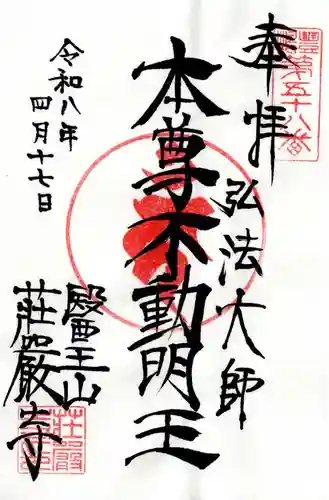 奉拝
豊第五十八番
弘法大師
本尊不動明王
令和八年
四月十七日
醫王山
荘嚴寺